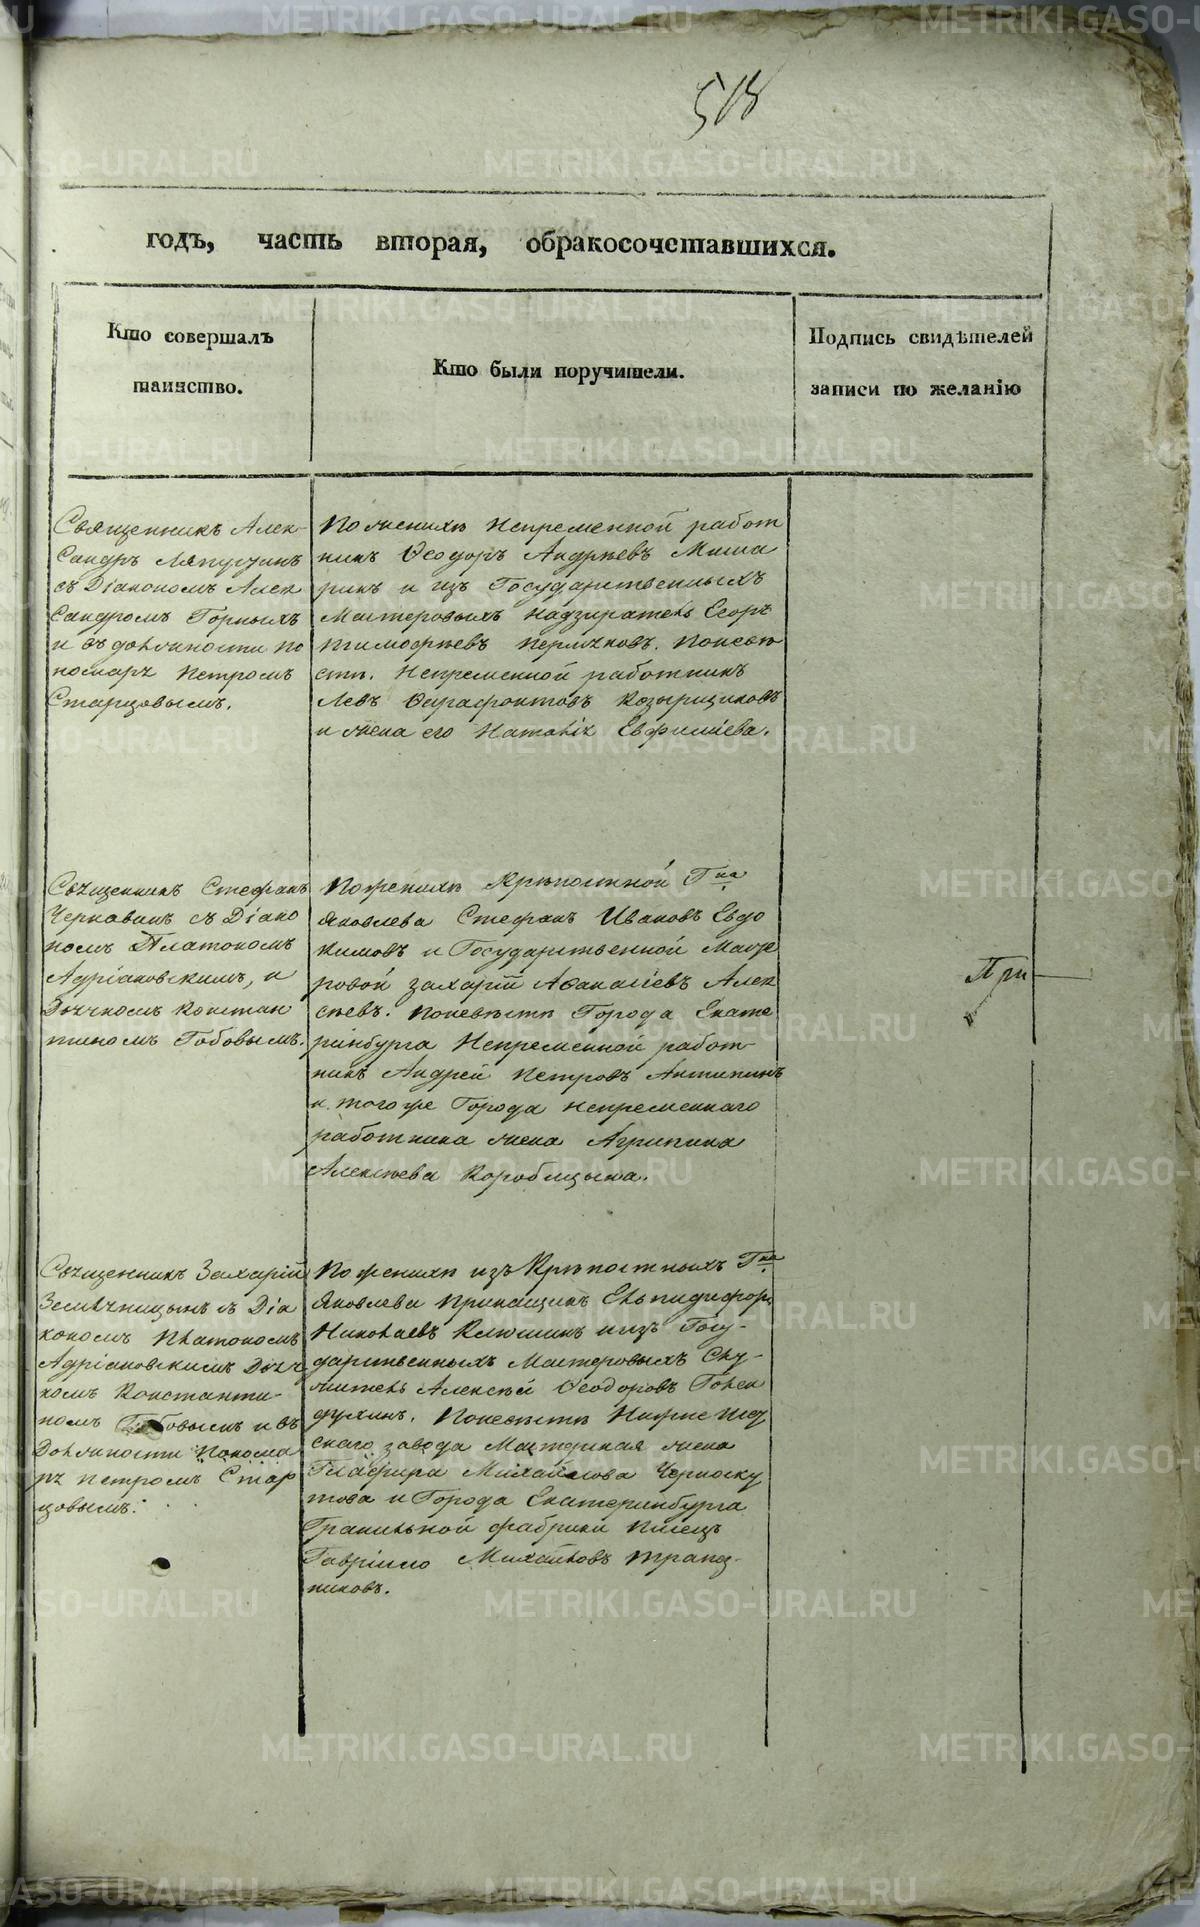 518
годъ, часть вторая, обракосочетавшихся.
Кто совершалъ
таинство.
Кто были поручители.
Подпись свидѣтелей
записи по желанію
Священникъ Алек-
сандръ Ляпустинъ
съ Діакономъ Алек
сандромъ Горныхъ
и въ должности по
номаря Петромъ
Старцовымъ.
По женихѣ Непременной работ
никъ Ѳеодоръ Андреевъ Миша
ринъ и изъ Государственныхъ
Мастеровыхъ Надзиратель Егоръ
Тимофеевъ Пермяковъ. По невѣ
стѣ. Непременной работникъ
Левъ Ферафонтовъ Козырщиковъ
и жена его Наталія
Священникъ Стефанъ
съ Діако
номъ Платономъ
Адріановскимъ, и
Дьячкомъ Констан
тиномъ
По женихѣ Крѣпостной Гна
Яковлева Стефанъ Ивановъ Евдо
кимовъ и Государственной Масте
ровой Захарій Афанасіевъ Алек
сѣевъ. По невѣстѣ Города Екате
ринбурга Непременной работ-
никъ Андрей Петровъ Антипинъ
и того же Города непременнаго
работника жена Агрипина
Алексѣева Коробицына.
При
Священникъ Захарій
Земляницынъ съ Діа
кономъ Платономъ
Адріановскимъ Дьяч
комъ Константи-
номъ и въ
Должности Понома
ря Петромъ Стар
цовымъ.
По женихѣ изъ Крѣпостныхъ Гна
Яковлева Прикащикъ Елпидифоръ
Николаевъ Клюшинъ и изъ Госу-
дарственныхъ Мастеровыхъ Слу-
житель Алексѣй Ѳеодоровъ
По невѣстѣ
скаго завода Мастерская жена
Глафира Михайлова Черноску
това и Города Екатеринбурга
Гранильной фабрики Писецъ
Гавріило Михайловъ Трапез-
никовъ.
METRIKI.GASO-URAL.RU